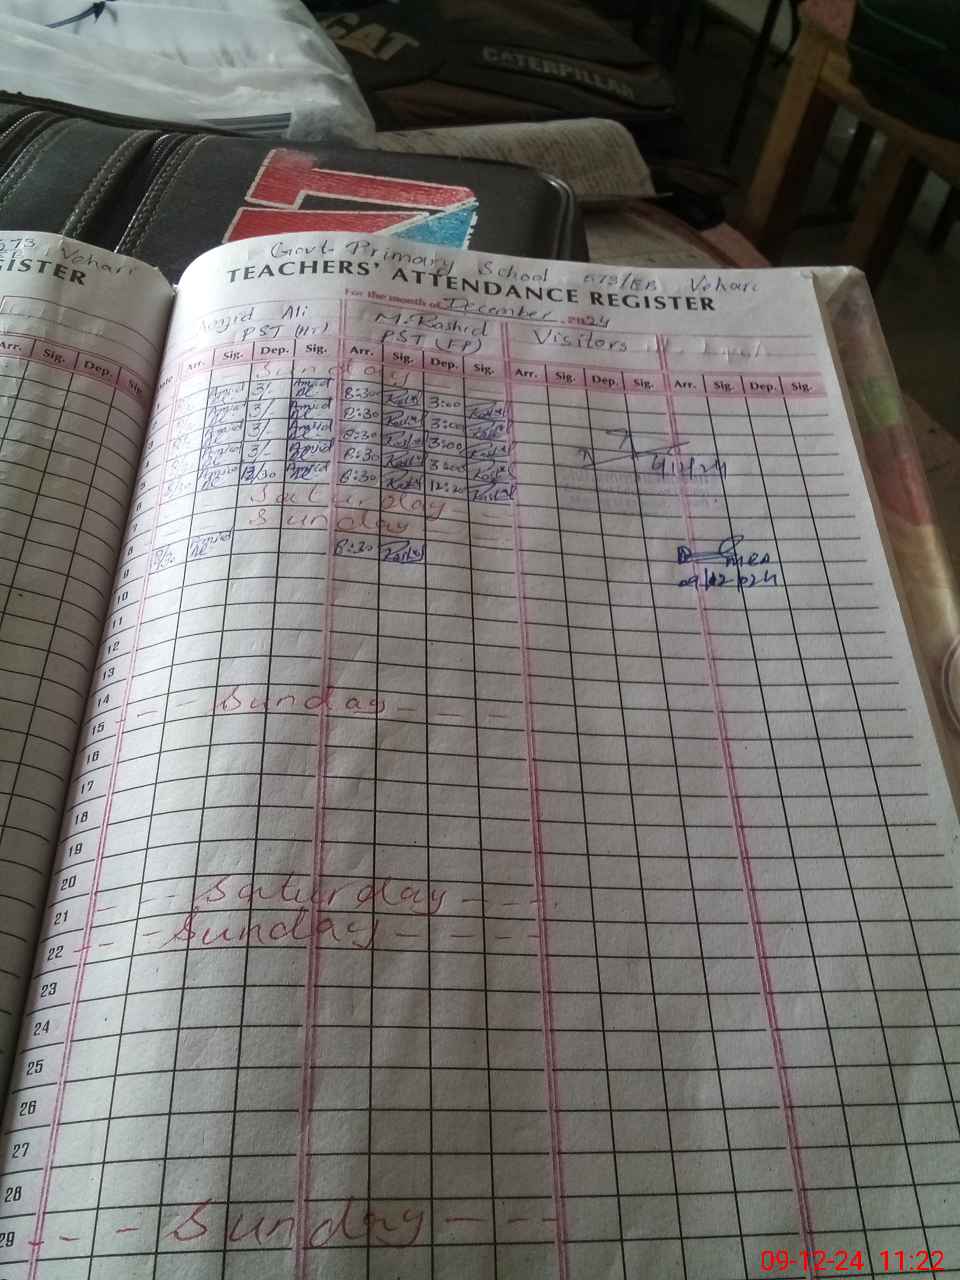 CAT
CATERPILLAR
Vehari
GISTER
Arr. Sig. Dep. Sig.
Govt. Primary School 573/EB Vehari
TEACHERS' ATTENDANCE REGISTER
For the month of December 2024
Amjid Ali M. Rashid Visitors
PST (HT) PST
Arr. Sig. Dep. Sig. Arr. Sig. Dep. Sig. Arr. Sig. Dep. Sig. Arr. Sig. Dep. Sig.
Sunday
Amjid 3/- Amjid 8:30 Rashid 3:00 Rashid
Amjid 3/- Amjid 8:30 Rashid 3:00 Rashid
Amjid 3/- Amjid 8:30 Rashid 3:00 Rashid
Amjid 3/- Amjid 8:30 Rashid 3:00 Rashid
Amjid 12/30 Amjid 8:30 Rashid 12:30 Rashid
4/12/24
Saturday
Sunday
8 Amjid 8:30 Rashid
9
09/12/024
10
11
12
13
14 Sunday
15
16
17
18
19
20 Saturday
21 Sunday
22
23
24
25
26
27
28 Sunday
29
09-12-24 11:22